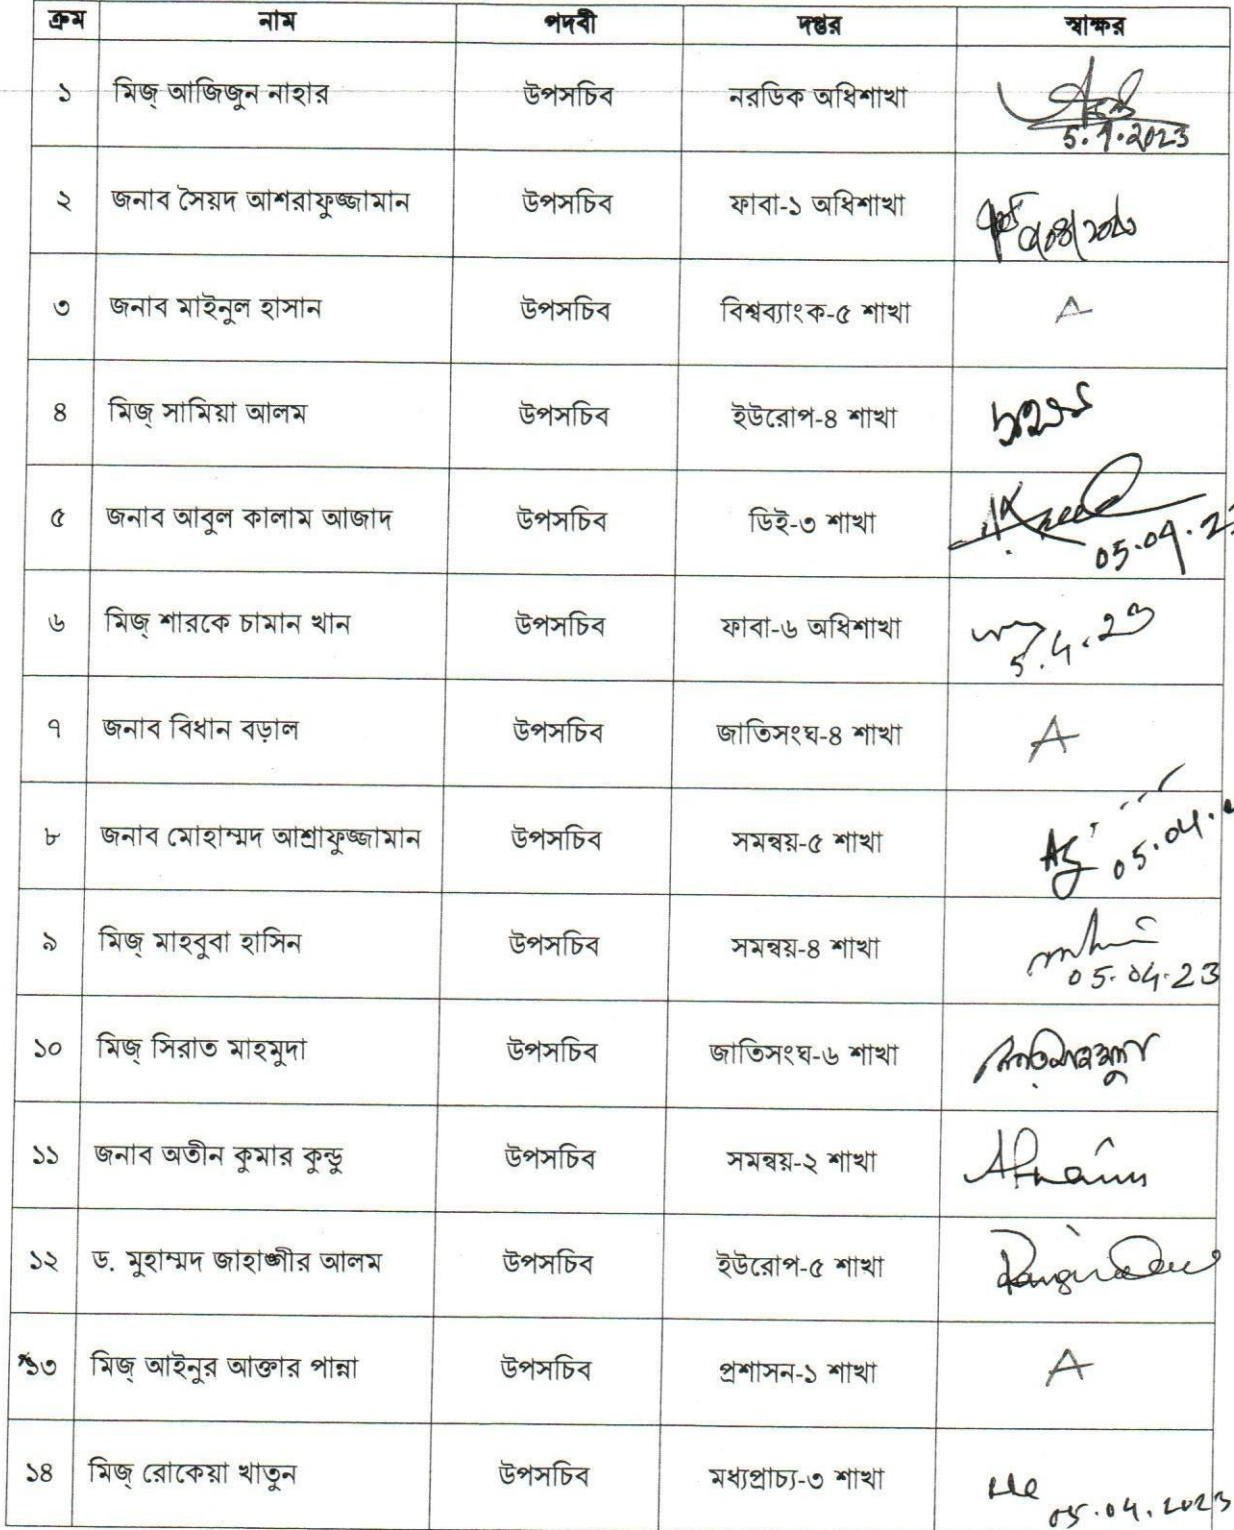 ক্রম নাম পদবী দপ্তর স্বাক্ষর
১ মিজ্ আজিজুন নাহার উপসচিব নরডিক অধিশাখা
5.4.2023
২ জনাব সৈয়দ আশরাফুজ্জামান উপসচিব ফাবা-১ অধিশাখা
৩ জনাব মাইনুল হাসান উপসচিব বিশ্বব্যাংক-৫ শাখা A
৪ মিজ্ সামিয়া আলম উপসচিব ইউরোপ-৪ শাখা
৫ জনাব আবুল কালাম আজাদ উপসচিব ডিই-৩ শাখা
05.04.23
৬ মিজ্ শারকে চামান খান উপসচিব ফাবা-৬ অধিশাখা
5.4.23
৭ জনাব বিধান বড়াল উপসচিব জাতিসংঘ-৪ শাখা A
৮ জনাব মোহাম্মদ আশ্রাফুজ্জামান উপসচিব সমন্বয়-৫ শাখা
05.04.
৯ মিজ্ মাহবুবা হাসিন উপসচিব সমন্বয়-৪ শাখা
05.04.23
১০ মিজ্ সিরাত মাহমুদা উপসচিব জাতিসংঘ-৬ শাখা
১১ জনাব অতীন কুমার কুন্ডু উপসচিব সমন্বয়-২ শাখা
১২ ড. মুহাম্মদ জাহাঙ্গীর আলম উপসচিব ইউরোপ-৫ শাখা
১৩ মিজ্ আইনুর আক্তার পান্না উপসচিব প্রশাসন-১ শাখা A
১৪ মিজ্ রোকেয়া খাতুন উপসচিব মধ্যপ্রাচ্য-৩ শাখা
05.04.2023